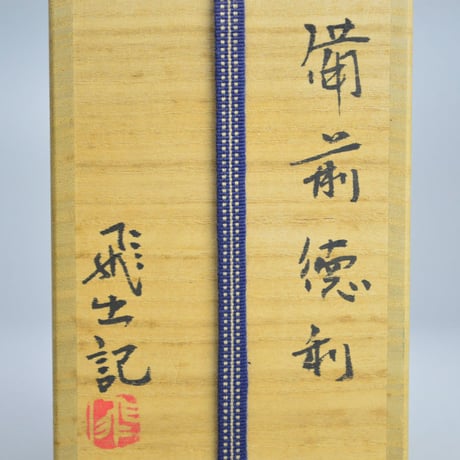 備前徳利
飛出記